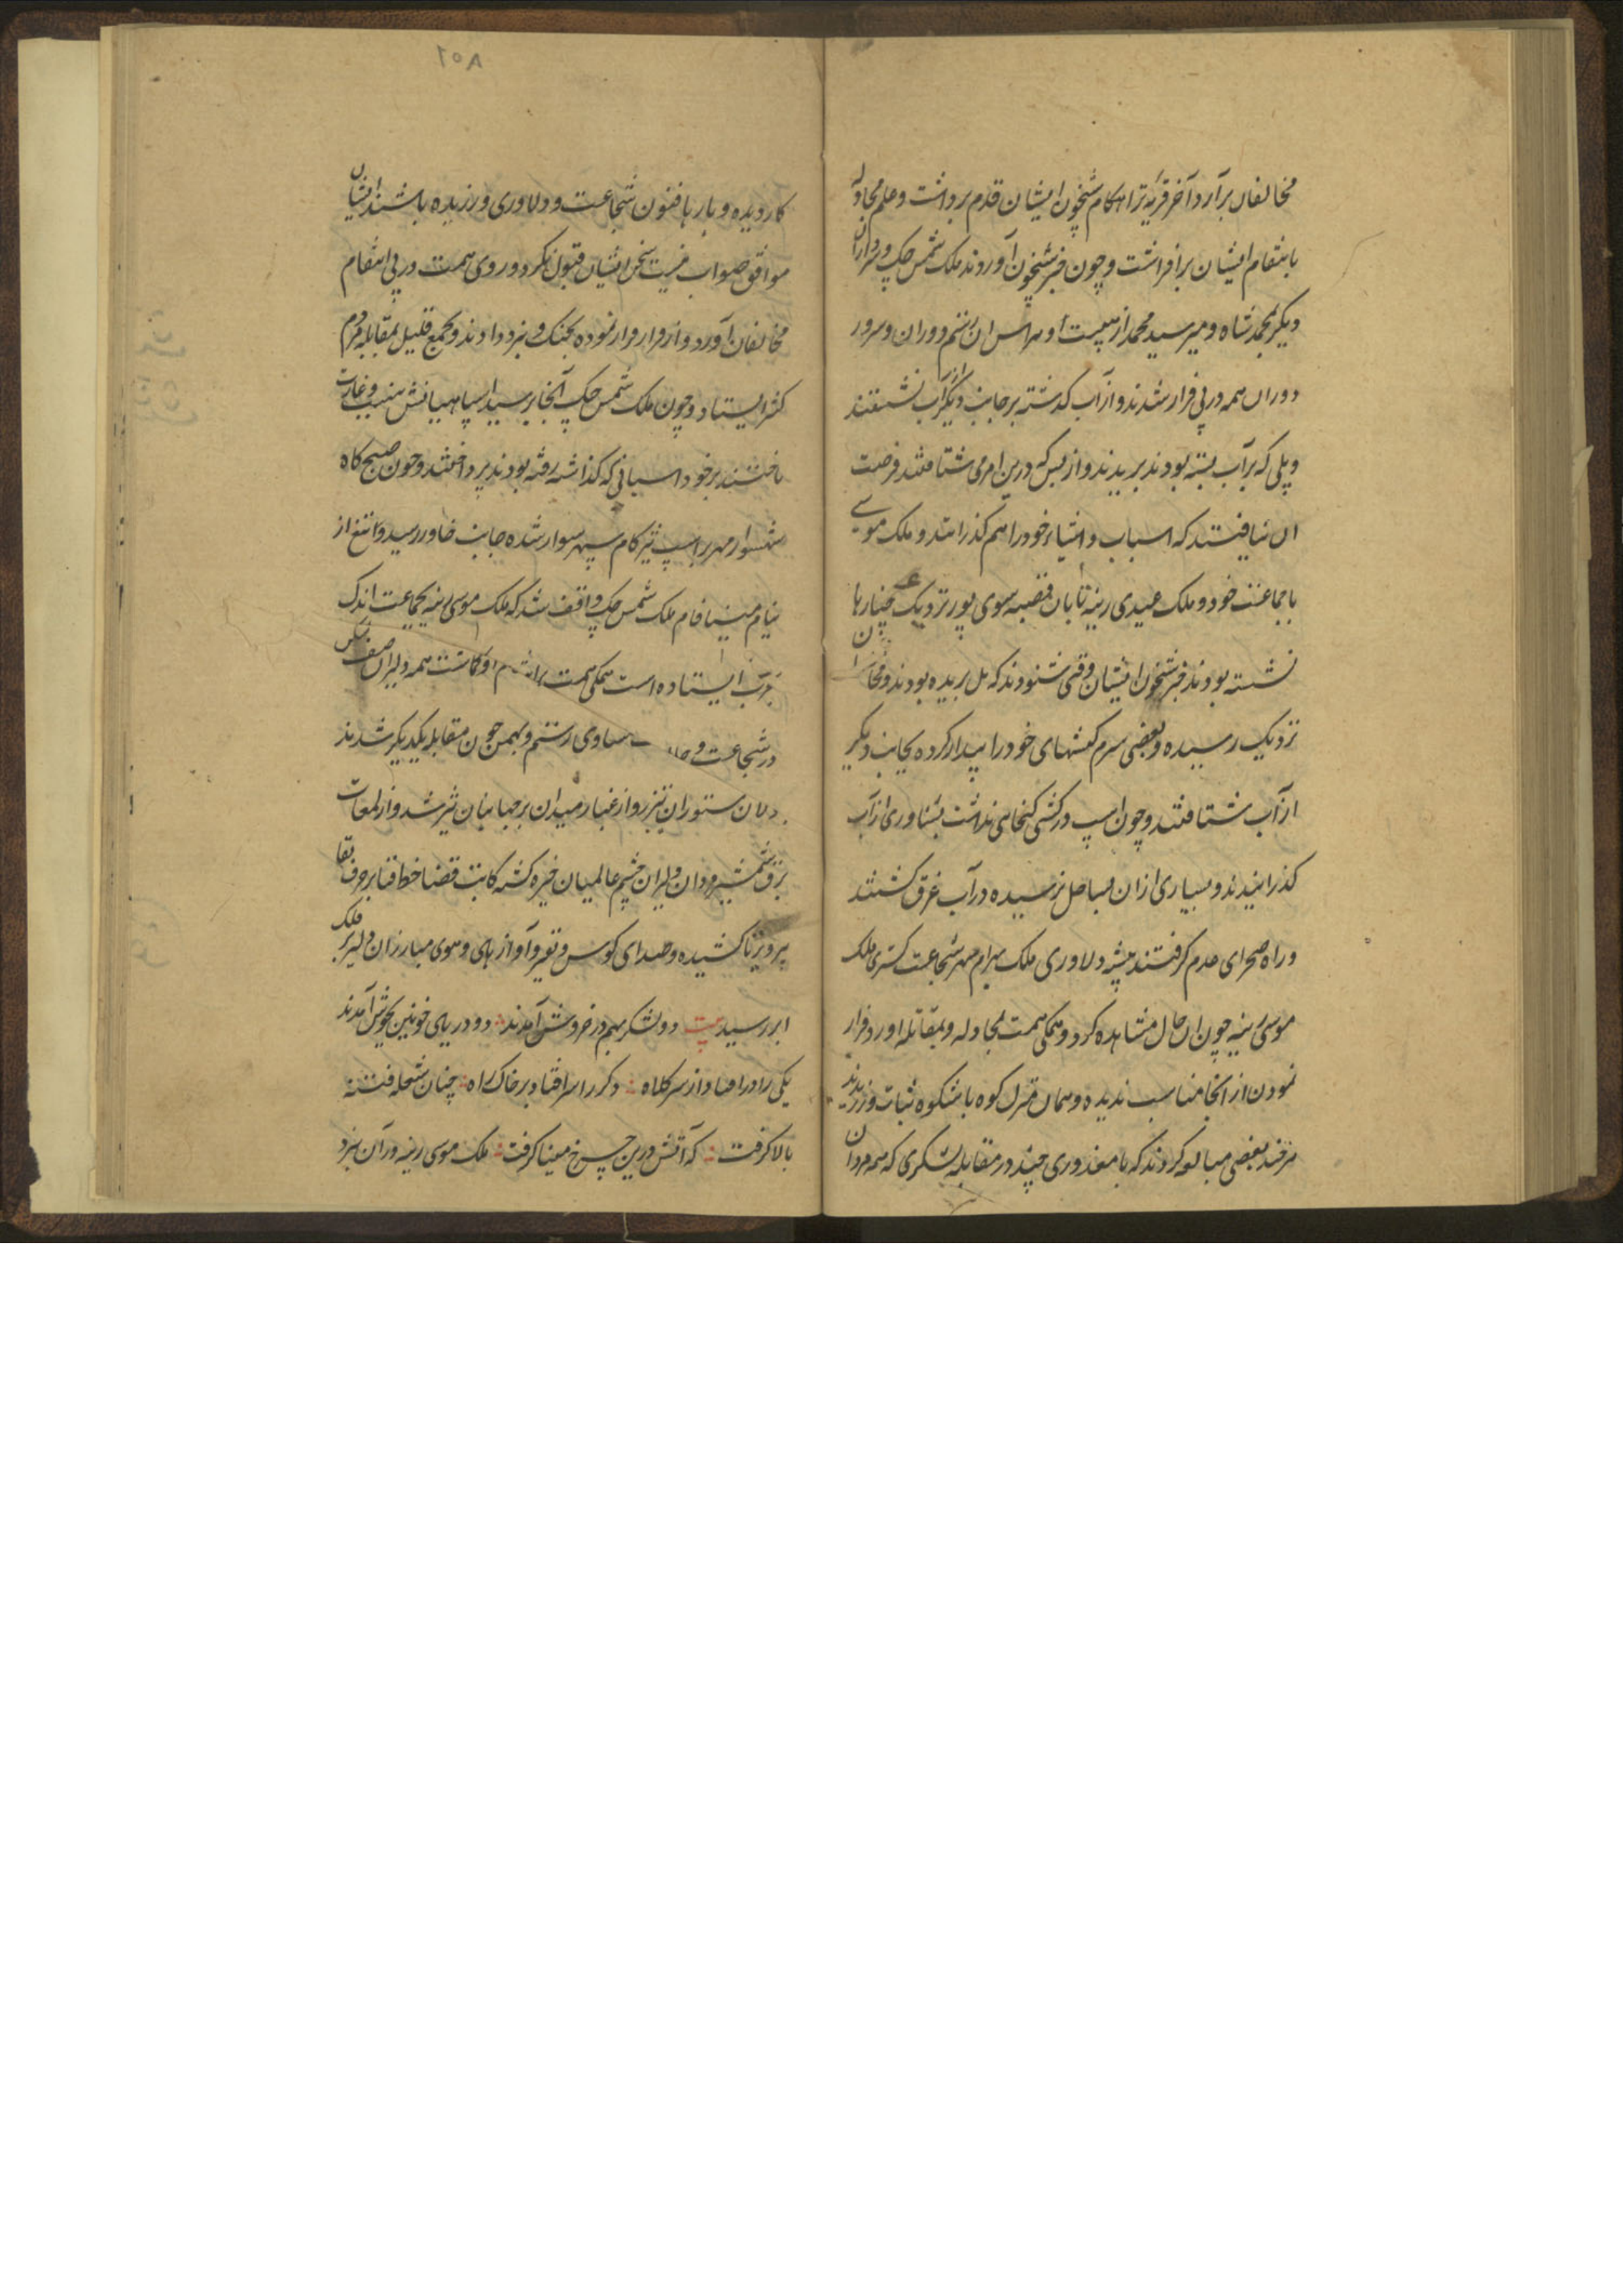 مخالفان برآرد آخر قریه ترا هکام شبخون ایشان قدم برداشت و علم مجادله
بانتقام ایشان برافراشت و چون خبر شبخون آوردند ملک شمس چک و سرداران
دیگر محمد شاه و میر سید محمد از هیبت او هراس ان رستم دوران و سرور
دوران همه در پی فرار شدند و از آب گذشته بر جانب دیگر آب نشستند
و پلی که بر آب بسته بودند بریدند و از بس که درین امر می شتافتند فرصت
ان نیافتند که اسباب و اشیاء خود را هم گذرانند و ملک موسی
با جماعت خود و ملک عیدی رینه تا بان قصبه سوی پور نزدیک چنارها
نشسته بودند خبر شبخون ایشان وقتی شنودند که پل بریده بودند و مخالفان
نزدیک رسیده و بعضی سرم کفشهای خود را بیدار کرده بجانب دیگر
از آب شتافتند و چون اسپ در کشتی گنجائی نداشت بشناوری از آب
گذرانیدند و بسیاری ازان بساحل نرسیده در آب غرق گشتند
و راه صحرای عدم گرفتند بیشه دلاوری ملک بهرام مهر شجاعت گستری ملک
موسی رینه چون ان حال مشاهده کرد و همگی همت بمجادله و بمقاتله اورد فرار
نمودن از انجا مناسب ندیده و همان منزل کوه باشکوه ثبات ورزیدند
هرچند بعضی مبالغه کردند که با معدوری چند در مقابله لشکری که همه مردان
۲۵۸
کاردیده و بارها فنون شجاعت و دلاوری ورزیده باشند ایشان
موافق صواب نیست سخن ایشان قبول نکرد و روی همت در پی انتقام
مخالفان آورد و از فرار قرار نموده بجنگ و نبرد دادند و بجمع قلیل بمقابله مردم
کثیر ایستاد و چون ملک شمس چک آنجا رسید سپاهیانش بنهب و غارت
تاختند بر خود اسبانی که گذاشته رفته بودند پرداختند و چون صبح گاه
شهسوار مهر بر اسپ تیزگام سپهر سوار شده جانب خاور رسید و تیغ از
نیام مینافام ملک شمس چک واقف شد که ملک موسی رینه بجماعت اندک
بر آب ایستاده است همگی همت او گماشت همه دلیران صف شکن
در شجاعت و مساوی رستم و بهمن چون مقابله یکدیگر شدند
ستوران تیزرو از غبار میدان بر جهانیان تیره شد و از لمعات
برق شمشیر مردان دلیران چشم عالمیان خیره گشته کاتب قضا خط فنا بر حرف بقا
پر و برنا کشیده و صدای کوس و نفیر و آواز های و هوی مبارزان دلیر بر فلک
ابر رسید بیت دو لشکر بهم در خروش آمدند دو دریای خونین بجوش آمدند
یکی را درافتاد از سر کلاه دگر را سر افتاد بر خاک راه چنان شعله فتنه
بالا گرفت که آتش درین چرخ مینا گرفت ملک موسی رینه دران نبرد